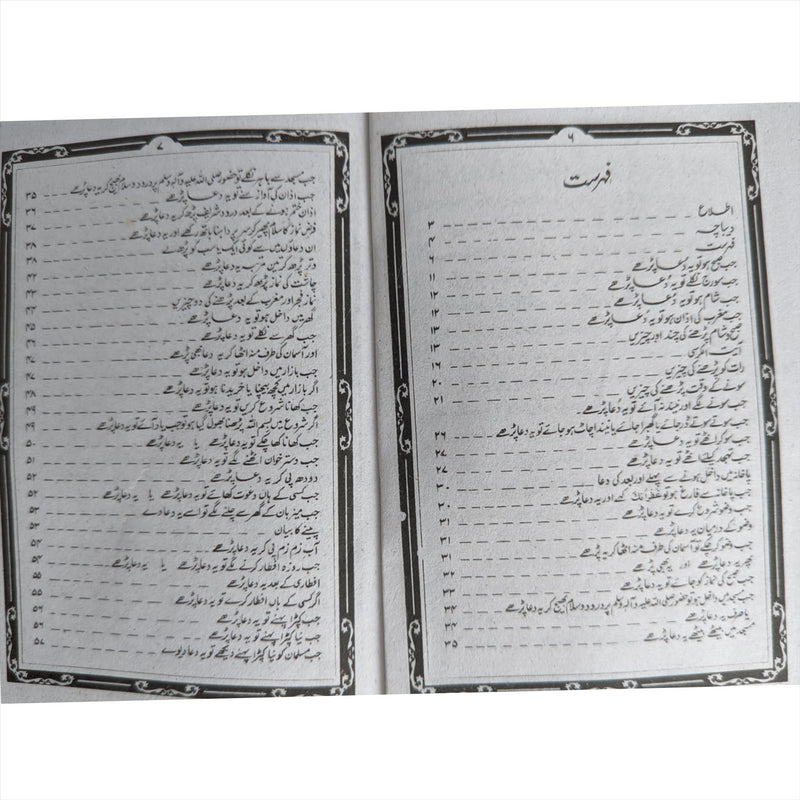 ۶
فہرست
اطلاع ۳
دیباچہ ۴
فہرست ۶
جب صبح ہو تو یہ دُعا پڑھے ۱۱
جب سورج نکلے تو یہ دُعا پڑھے ۱۲
جب شام ہو تو یہ دُعا پڑھے ۱۲
جب مغرب کی اذان ہو تو یہ دُعا پڑھے ۱۳
صبح و شام پڑھنے کی چند اور چیزیں ۱۳
آیت الکرسی ۱۶
رات کو پڑھنے کی چیزیں ۲۰
سونے کے وقت پڑھنے کی چیزیں ۲۱
جب سونے لگے اور نیند نہ آئے تو یہ دُعا پڑھے
جب سوتے سوتے ڈر جائے یا گھبرا جائے یا نیند اچاٹ ہو جائے تو یہ دعا پڑھے ۲۶
جب سو کر اٹھے تو یہ دعا پڑھے ۲۷
جب تہجد کیلئے اٹھے تو یہ دعا پڑھے ۲۷
پاخانہ میں داخل ہونے سے پہلے اور بعد کی دعا ۳۰
جب پاخانہ سے فارغ ہو تو غُفْرَانَکَ کہے اور یہ دعا پڑھے ۳۰
جب وضو شروع کرے تو یہ دعا پڑھے ۳۱
وضو کے درمیان یہ دعا پڑھے ۳۱
جب وضو کر چکے تو آسمان کی طرف منہ اٹھا کر یہ پڑھے ۳۱
پھر یہ دعا پڑھے اور یہ بھی پڑھے
جب صبح کی نماز کو جائے تو یہ دعا پڑھے ۳۳
جب مسجد میں داخل ہو تو حضور صلی اللہ علیہ وآلہ وسلم پر درود و سلام بھیج کر یہ دعا پڑھے ۳۴
یا صرف یہ دعا پڑھے
مسجد میں بیٹھے بیٹھے یہ دعا پڑھے ۳۵
۷
جب مسجد سے باہر نکلے تو حضور صلی اللہ علیہ وآلہ وسلم پر درود و سلام بھیج کر یہ دعا پڑھے ۳۵
جب اذان کی آواز سنے تو یہ دعا پڑھے ۳۶
اذان ختم ہونے کے بعد درود شریف پڑھ کر یہ دعا پڑھے
فرض نماز کا سلام پھیر کر سر پر داہنا ہاتھ رکھے اور یہ دعا پڑھے ۳۸
ان دعاؤں میں سے کوئی ایک یا سب کو پڑھے ۳۸
وتر پڑھ کر تین مرتبہ یہ دعا پڑھے
چاشت کی نماز پڑھ کر یہ دعا پڑھے ۴۳
نماز فجر اور مغرب کے بعد پڑھنے کی دو چیزیں ۴۳
گھر میں داخل ہو تو یہ دعا پڑھے ۴۵
جب گھر سے نکلے تو یہ دعا پڑھے
اور آسمان کی طرف منہ اٹھا کر یہ دعا بھی پڑھے ۴۷
جب بازار میں داخل ہو تو یہ دعا پڑھے ۴۷
اگر بازار میں کچھ بیچنا یا خریدنا ہو تو یہ دعا پڑھے
جب کھانا شروع کریں تو یہ دعا پڑھے ۴۹
اگر شروع میں بسم اللہ پڑھنا بھول گیا ہو تو جب یاد آئے تو یہ دعا پڑھے ۴۹
جب کھانا کھا چکے تو یہ دعا پڑھے یا یہ دعا پڑھے ۵۰
جب دستر خوان اٹھنے لگے تو یہ دعا پڑھے ۵۱
دودھ پی کر یہ دعا پڑھے
جب کسی کے ہاں دعوت کھائے تو یہ دعا پڑھے یا یہ دعا پڑھے ۵۲
جب میزبان کے گھر سے چلنے لگے تو اسے یہ دعا دے ۵۲
پینے کا بیان ۵۳
آب زم زم پی کر یہ دعا پڑھے ۵۳
جب روزہ افطار کرنے لگے تو یہ دعا پڑھے یا یہ دعا پڑھے ۵۴
افطاری کے بعد یہ دعا پڑھے
اگر کسی کے ہاں افطار کرے تو یہ دعا پڑھے ۵۵
جب کپڑا پہنے تو یہ دعا پڑھے ۵۶
جب نیا کپڑا پہنے تو یہ دعا پڑھے ۵۶
جب مسلمان کو نیا کپڑا پہنے دیکھے تو یہ دعا دیوے ۵۷